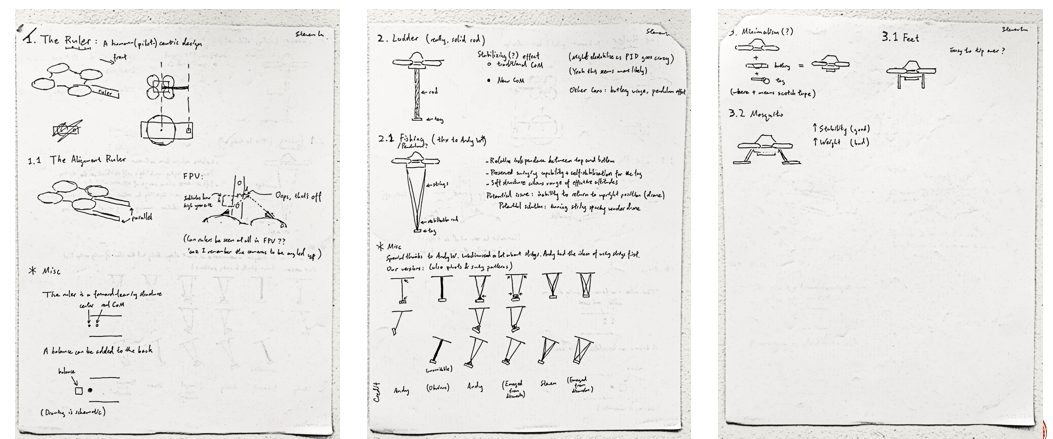 1. The Ruler: A human(pilot)centric design
Steven L.
front
ruler
1.1 The Alignment Ruler
FPV:
Oops, that's off
parallel
(Can rulers be seen at all in FPV??
'cuz I remember the cameras to be angled up.)
* Misc
The ruler is a forward-leaning structure
center real CoM
A balance can be added to the back
balance
(Drawing is schematic)
2. Ladder (really, solid rod)
Steven L.
Stabilizing(?) effect
○ traditional CoM
● New CoM
(might destabilize as PID goes crazy)
(Yeah this seems more likely)
Other cons: battery usage, pendulum effect
rod
tag
2.1 Fishing (thx to Andy W)
/Pendulum?
- Relative independence between top and bottom
- Preserved swinging capability & self-stabilization for the tag
- Soft structure widens range of effective altitudes
Potential issue: inability to return to upright position (drone)
Potential solution: tuning string spacing under drone
strings
tag
* Misc
Special thanks to Andy W. We discussed a lot about strings. Andy had the idea of using strings first.
Our versions: (also pivots & swing patterns)
(unavailable)
Credit
Andy
(Obvious)
Andy
(Emerged from discussion)
Steven
(Emerged from discussion)
3. Minimalism(?)
+ battery =
+ tag
(where + means scotch tape)
3.1 Feet
Steven L.
Easy to tip over?
3.2 Mosquito
↑ Stability (good)
↑ Weight (bad)